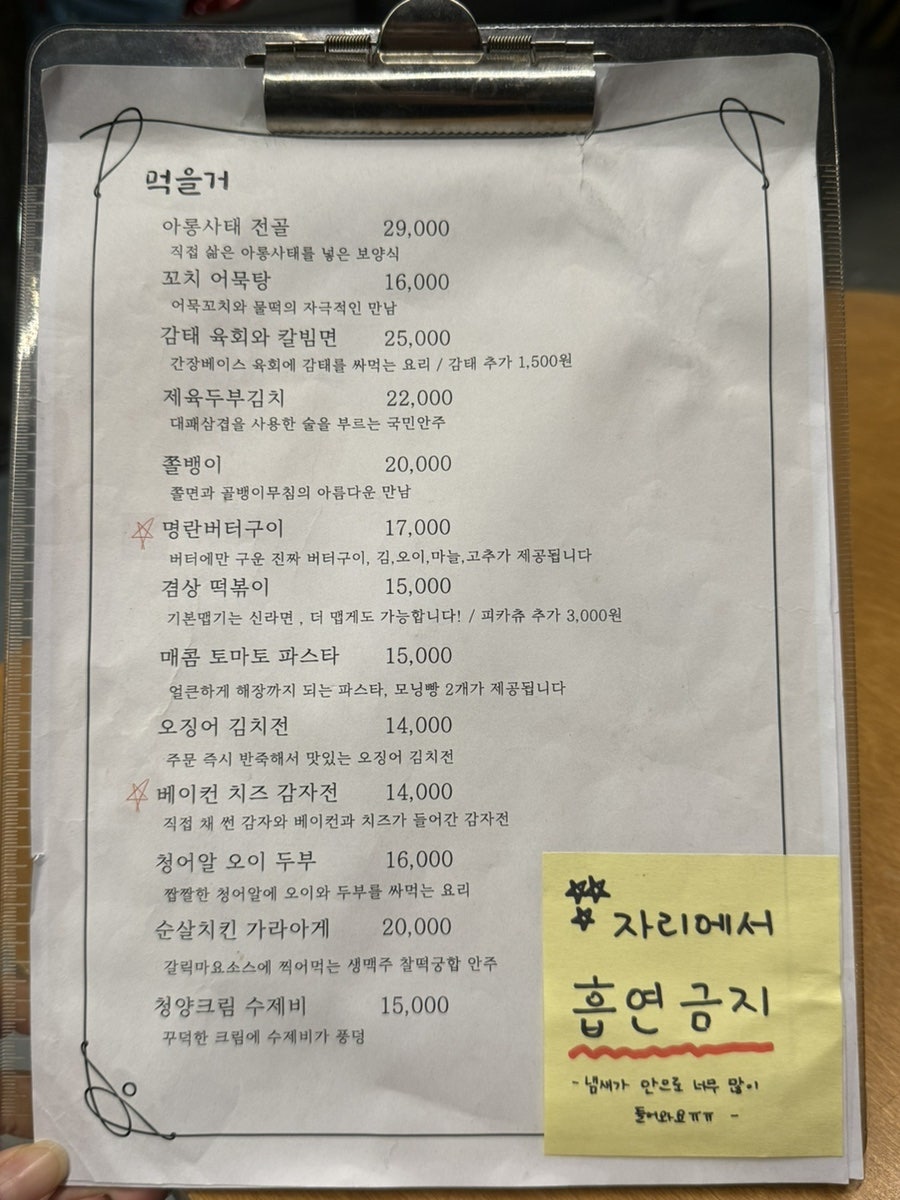 먹을거
아롱사태 전골 29,000
직접 삶은 아롱사태를 넣은 보양식
꼬치 어묵탕 16,000
어묵꼬치와 물떡의 자극적인 만남
감태 육회와 칼빔면 25,000
간장베이스 육회에 감태를 싸먹는 요리 / 감태 추가 1,500원
제육두부김치 22,000
대패삼겹을 사용한 술을 부르는 국민안주
쫄뱅이 20,000
쫄면과 골뱅이무침의 아름다운 만남
명란버터구이 17,000
버터에만 구운 진짜 버터구이, 김,오이,마늘,고추가 제공됩니다
겸상 떡볶이 15,000
기본맵기는 신라면 , 더 맵게도 가능합니다! / 피카츄 추가 3,000원
매콤 토마토 파스타 15,000
얼큰하게 해장까지 되는 파스타, 모닝빵 2개가 제공됩니다
오징어 김치전 14,000
주문 즉시 반죽해서 맛있는 오징어 김치전
베이컨 치즈 감자전 14,000
직접 채 썬 감자와 베이컨과 치즈가 들어간 감자전
청어알 오이 두부 16,000
짭짤한 청어알에 오이와 두부를 싸먹는 요리
순살치킨 가라아게 20,000
갈릭마요소스에 찍어먹는 생맥주 찰떡궁합 안주
청양크림 수제비 15,000
꾸덕한 크림에 수제비가 풍덩
자리에서
흡연 금지
- 냄새가 안으로 너무 많이
들어와요ㅠㅠ -